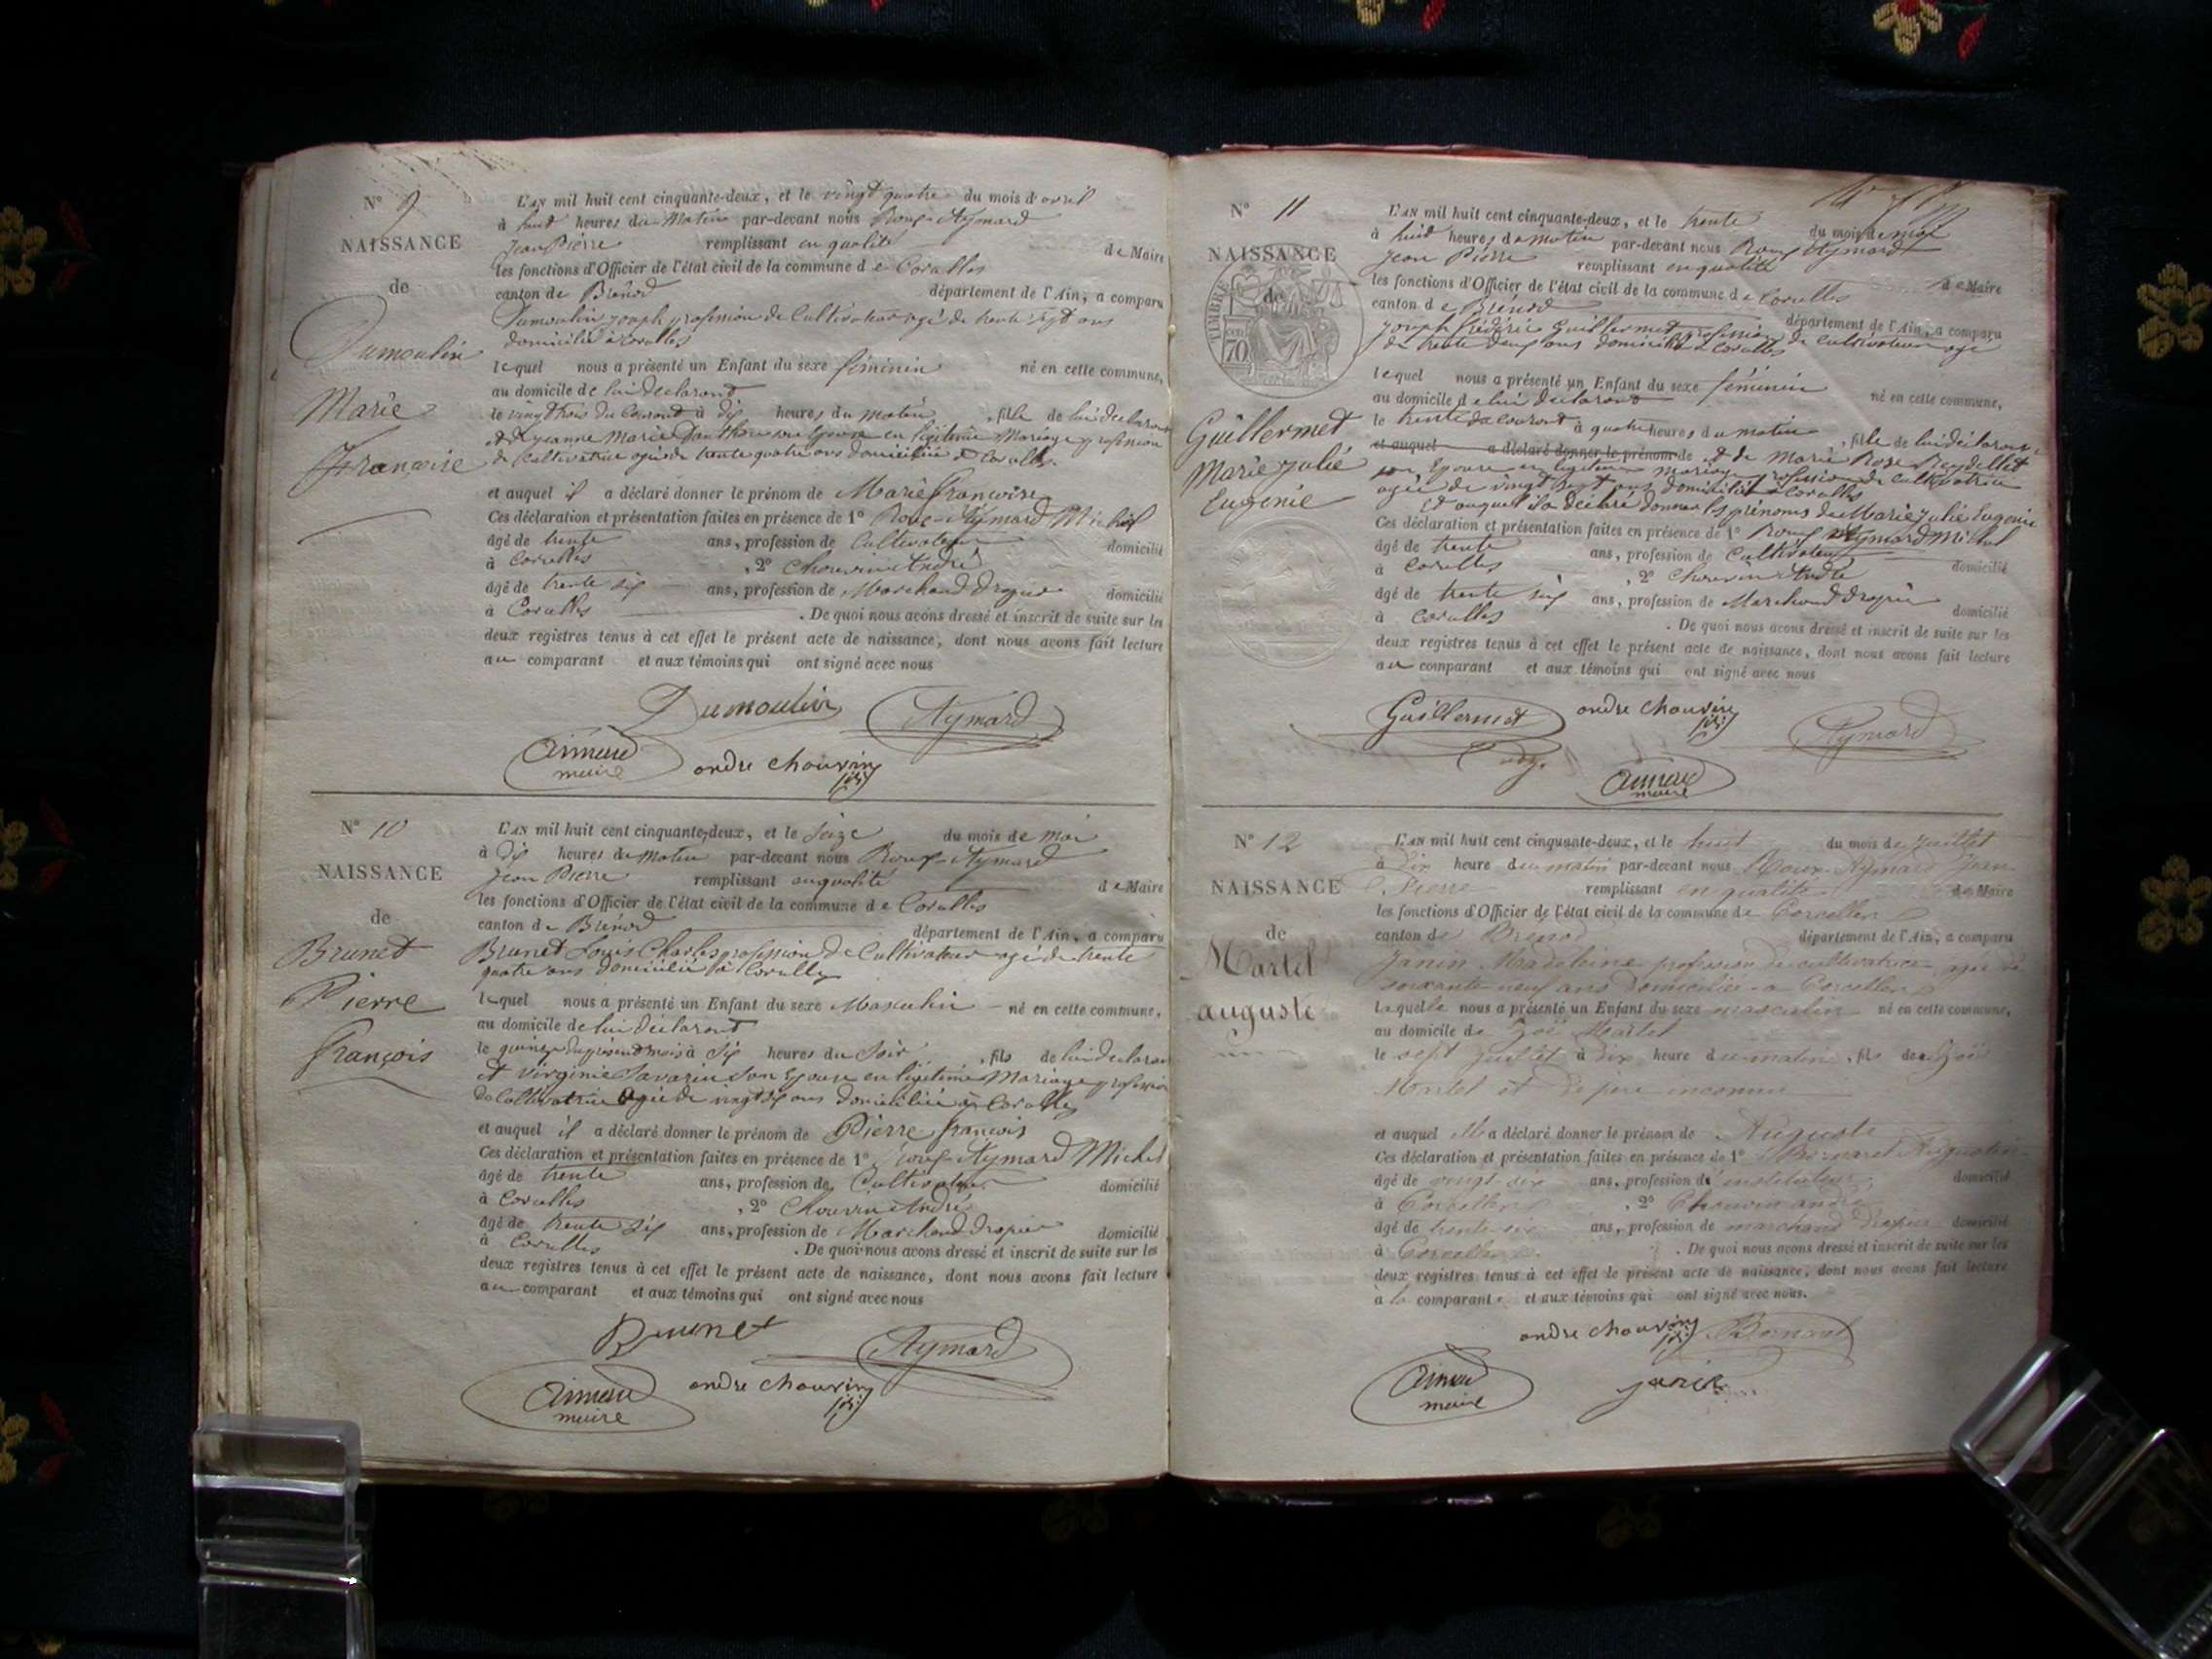 N° 9
NAISSANCE
de
Dumoulin
Marie
Françoise
L'AN mil huit cent cinquante-deux, et le vingt quatre du mois d'avril
à huit heures du Matin par-devant nous Roux-Aymard
Jean Pierre remplissant en qualité de Maire
les fonctions d'Officier de l'état civil de la commune de Corcelles
canton de Brénod département de l'Ain, a comparu
Dumoulin joseph profession de Cultivateur agé de trente sept ans
domicilié à Corcelles
lequel nous a présenté un Enfant du sexe féminin né en cette commune,
au domicile de lui déclarant
le vingt trois du Courant à dix heures du matin, fille de lui déclarant
et de jeanne Marie son Epouse en légitime Mariage profession
de Cultivatrice agée de trente quatre ans domiciliée à Corcelles.
et auquel il a déclaré donner le prénom de Marie françoise
Ces déclaration et présentation faites en présence de 1° Roux-Aymard Michel
âgé de trente ans, profession de Cultivateur domicilié
à Corcelles, 2° Chouvin André
âgé de trente six ans, profession de Marchand Drapier domicilié
à Corcelles. De quoi nous avons dressé et inscrit de suite sur les
deux registres tenus à cet effet le présent acte de naissance, dont nous avons fait lecture
au comparant et aux témoins qui ont signé avec nous
Dumoulin Aymard
Aimard
maire
andre chouvin
N° 10
NAISSANCE
de
Brunet
Pierre
françois
L'AN mil huit cent cinquante-deux, et le seize du mois de mai
à dix heures du Matin par-devant nous Roux-Aymard
Jean Pierre remplissant en qualité de Maire
les fonctions d'Officier de l'état civil de la commune de Corcelles
canton de Brénod département de l'Ain, a comparu
Brunet Louis Charles profession de Cultivateur agé de trente
quatre ans domicilié à Corcelles
lequel nous a présenté un Enfant du sexe Masculin né en cette commune,
au domicile de lui déclarant
le quinze du présent mois à six heures du soir, fils de lui déclarant
et virginie Savarin son Epouse en légitime Mariage profession
de Cultivatrice agée de vingt six ans domiciliée à Corcelles
et auquel il a déclaré donner le prénom de Pierre françois
Ces déclaration et présentation faites en présence de 1° Roux-Aymard Michel
âgé de trente ans, profession de Cultivateur domicilié
à Corcelles, 2° Chouvin André
âgé de trente six ans, profession de Marchand drapier domicilié
à Corcelles. De quoi nous avons dressé et inscrit de suite sur les
deux registres tenus à cet effet le présent acte de naissance, dont nous avons fait lecture
au comparant et aux témoins qui ont signé avec nous
Brunet Aymard
Aimard
maire
andre chouvin
N° 11
NAISSANCE
de
TIMBRE
70
Guillermet
Marie julie
Eugenie
L'AN mil huit cent cinquante-deux, et le trente du mois de mai
à huit heures du matin par-devant nous Roux Aymard
Jean Pierre remplissant en qualité de Maire
les fonctions d'Officier de l'état civil de la commune de Corcelles
canton de Brénod département de l'Ain, a comparu
Joseph frédéric Guillermet profession de cultivateur agé
de trente deux ans domicilié à Corcelles
lequel nous a présenté un Enfant du sexe féminin né en cette commune,
au domicile de lui déclarant
le trente du courant à quatre heures du matin, fille de lui déclarant
et auquel a déclaré donner le prénom de et de Marie Rose Reydellet
son Epouse en légitime mariage profession de cultivatrice
agée de vingt sept ans domiciliée à Corcelles
et auquel il a déclaré donner les prénoms de Marie Julie Eugenie
Ces déclaration et présentation faites en présence de 1° Roux Aymard Michel
âgé de trente ans, profession de Cultivateur domicilié
à Corcelles, 2° Chouvin André
âgé de trente six ans, profession de Marchand drapier domicilié
à Corcelles. De quoi nous avons dressé et inscrit de suite sur les
deux registres tenus à cet effet le présent acte de naissance, dont nous avons fait lecture
au comparant et aux témoins qui ont signé avec nous
Guillermet andre chouvin Aymard
Aimard
maire
N° 12
NAISSANCE
de
Martel
auguste
L'AN mil huit cent cinquante-deux, et le huit du mois de juillet
à dix heure du matin par-devant nous Roux-Aymard Jean
Pierre remplissant en qualité de Maire
les fonctions d'Officier de l'état civil de la commune de Corcelles
canton de Brénod département de l'Ain, a comparu
Janin Madeleine profession de cultivatrice agée de
soixante neuf ans domiciliée à Corcelles
laquelle nous a présenté un Enfant du sexe masculin né en cette commune,
au domicile de Zoé Martel
le sept juillet à dix heure du matin, fils de Zoé
Martel et de père inconnu
et auquel elle a déclaré donner le prénom de Auguste
Ces déclaration et présentation faites en présence de 1° Bernard Augustin
âgé de vingt six ans, profession d'instituteur domicilié
à Corcelles, 2° Chouvin andré
âgé de trente six ans, profession de marchand drapier domicilié
à Corcelles. De quoi nous avons dressé et inscrit de suite sur les
deux registres tenus à cet effet le présent acte de naissance, dont nous avons fait lecture
à la comparante et aux témoins qui ont signé avec nous.
andre chouvin Bernard
Aimard
maire
janin